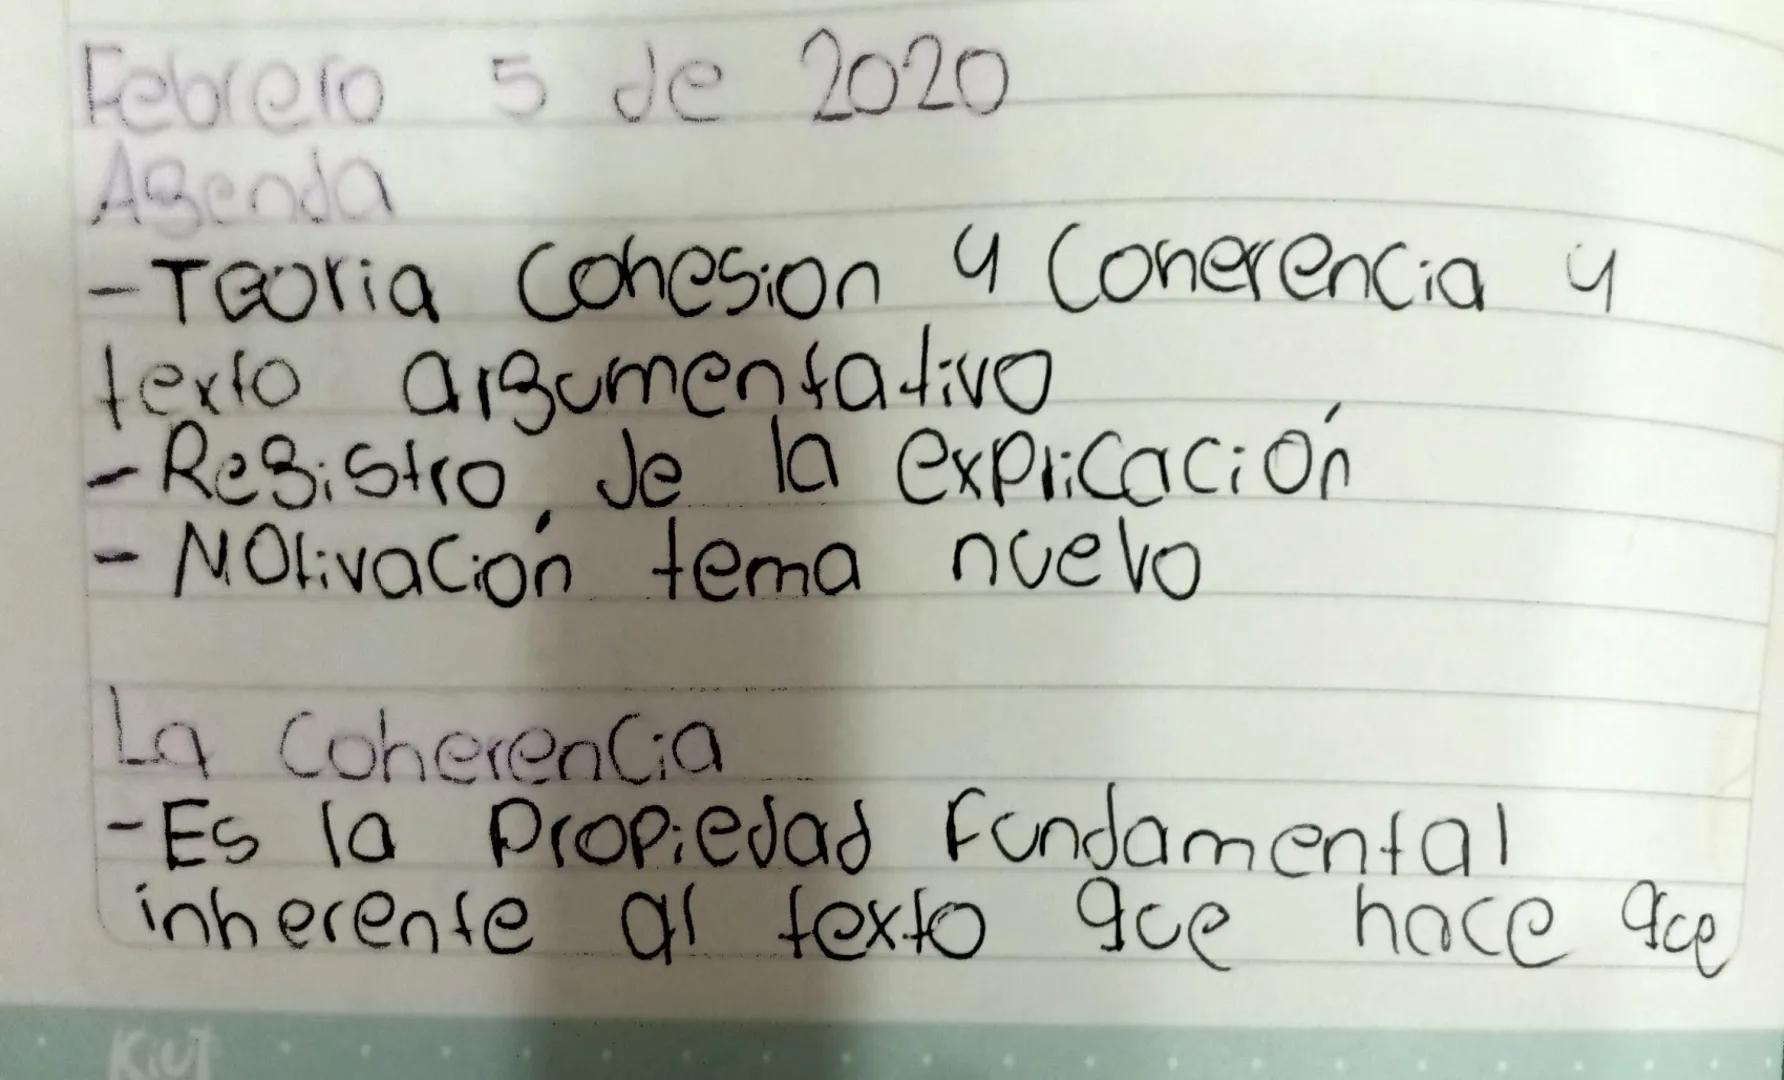 Febrero 5 de 2020
Agenda
- Teoria Cohesion y Coherencia y
texto argumentativo
- Registro de la explicación
- Motivación tema nuevo
La Coherencia
- Es la Propiedad Fundamental
inherente al texto que hace que
Kiut